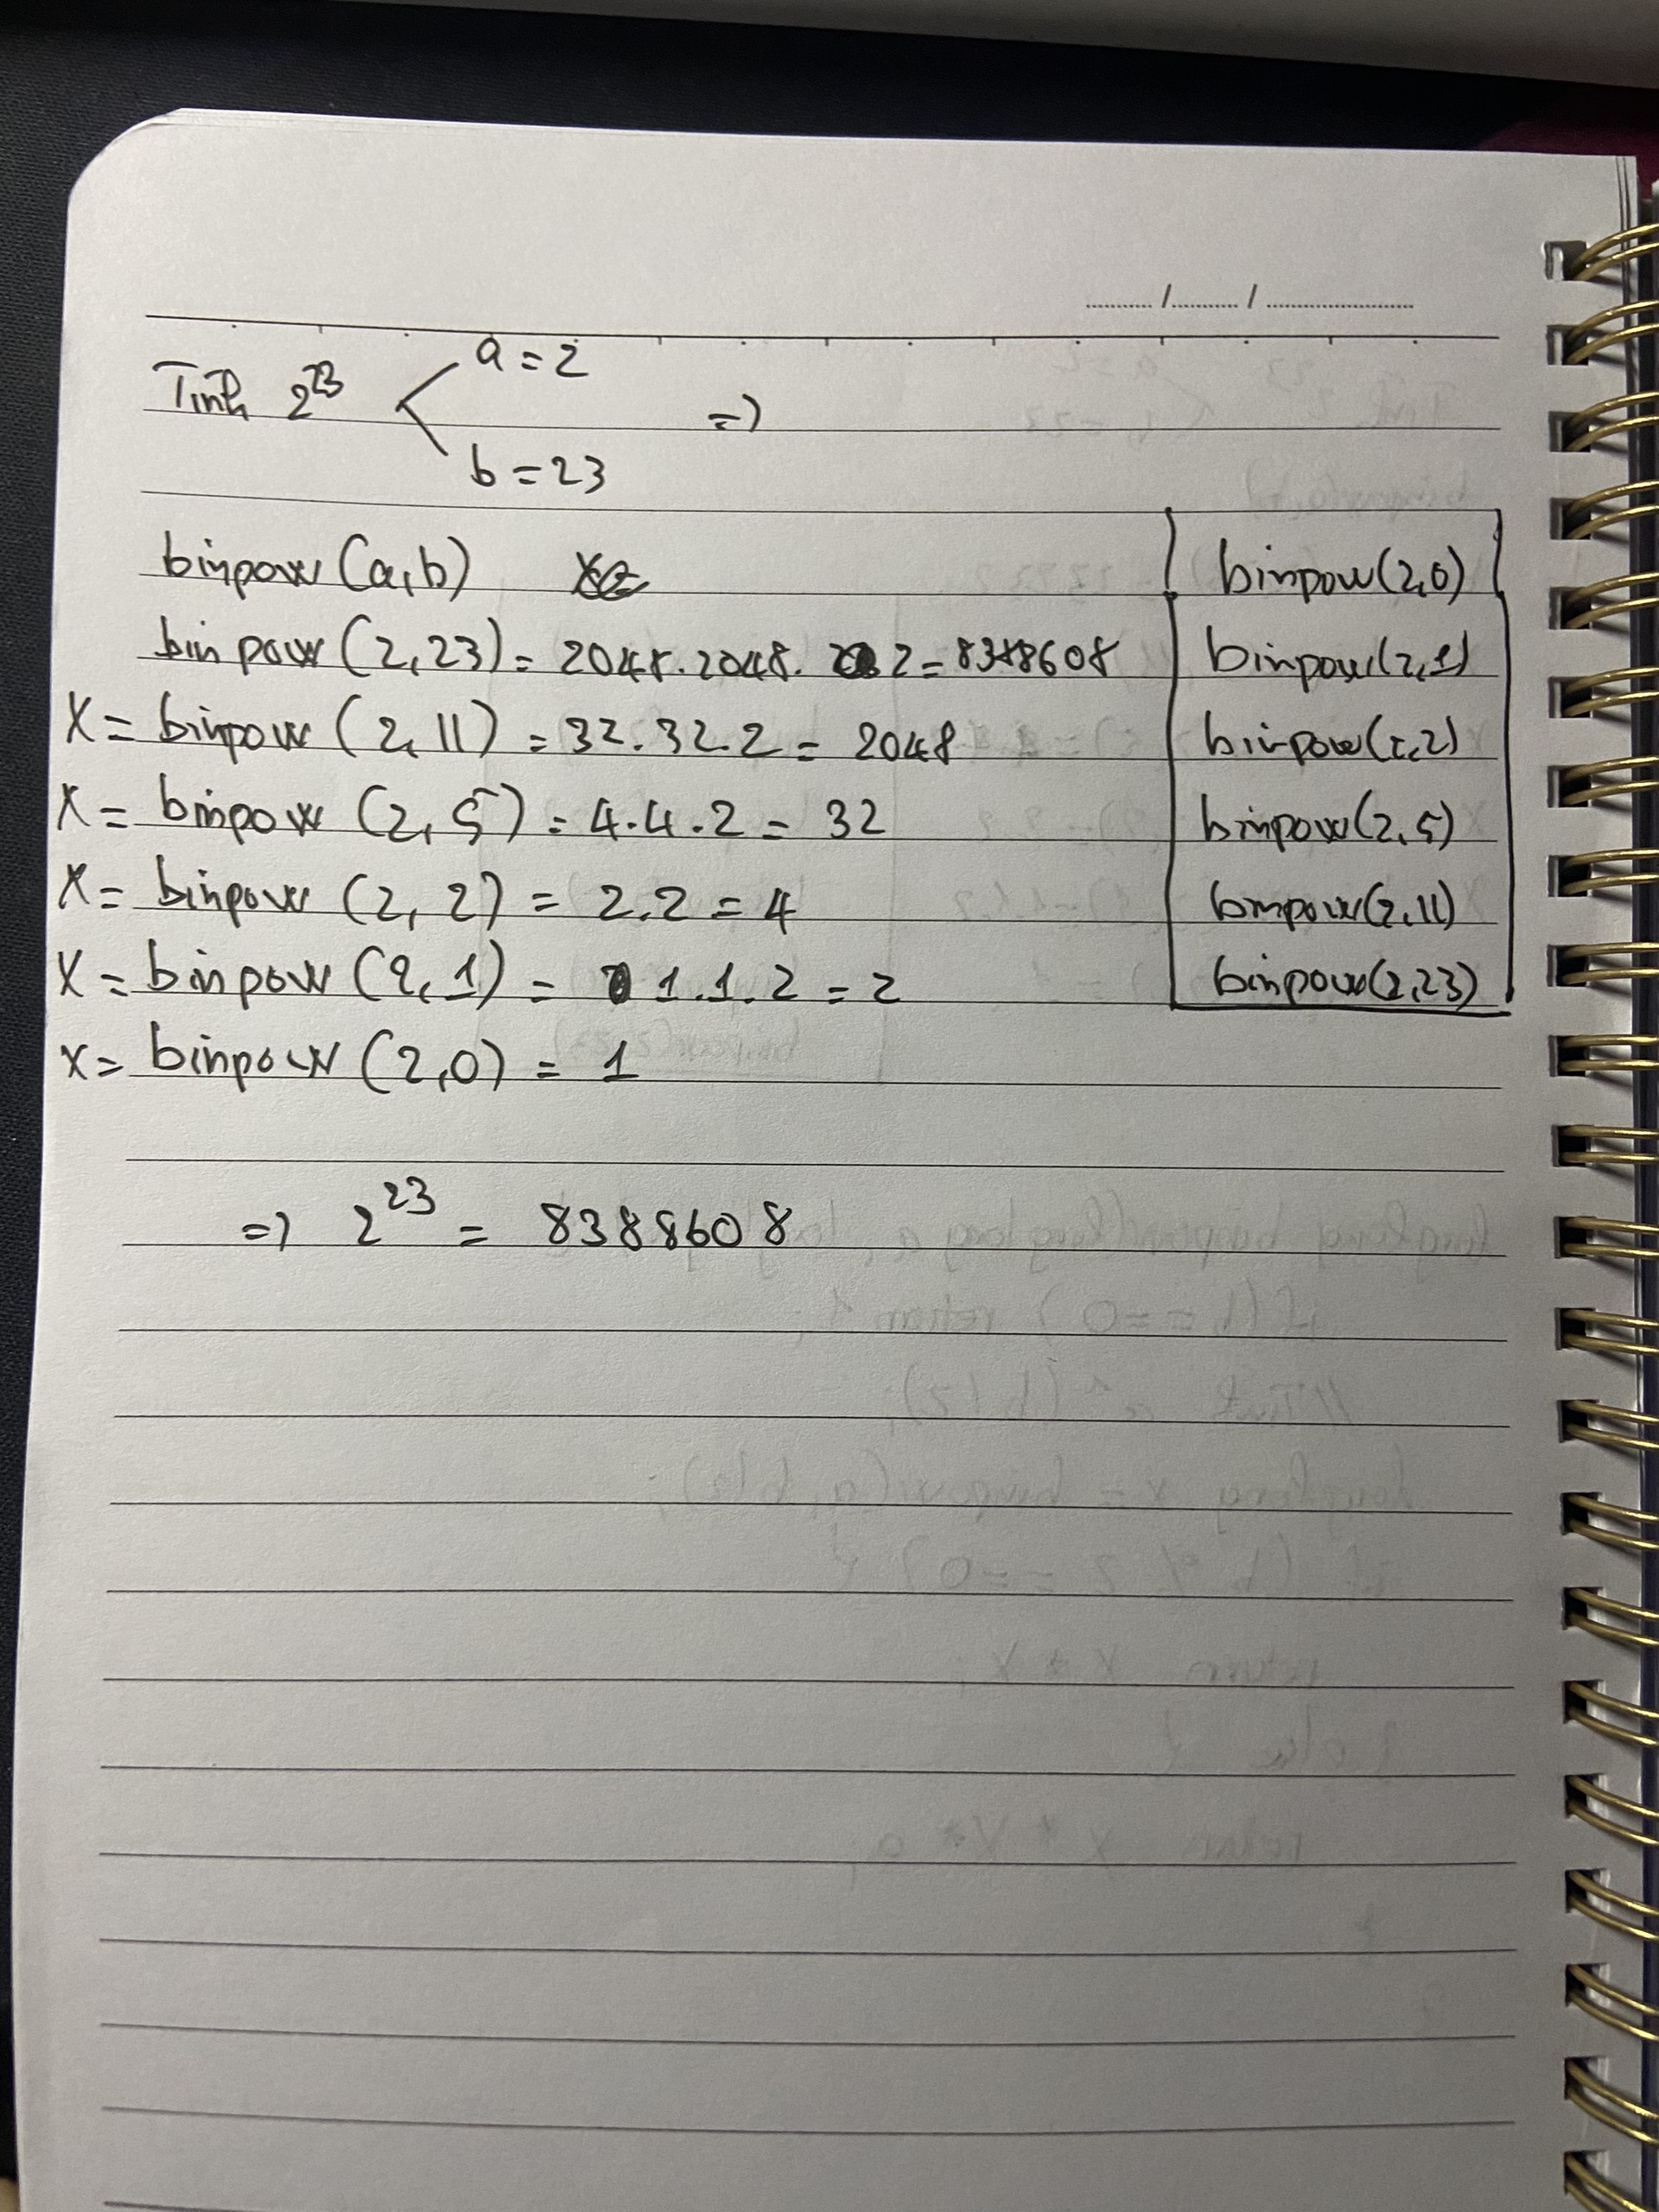 Tính 2^23
a = 2
=>
b = 23
binpow (a,b)
binpow (2,23) = 2048.2048. 2 = 8388608
X = binpow (2,11) = 32.32.2 = 2048
X = binpow (2,5) = 4.4.2 = 32
X = binpow (2,2) = 2.2 = 4
X = binpow (2,1) = 1.1.2 = 2
X = binpow (2,0) = 1
binpow(2,0)
binpow(2,1)
binpow(2,2)
binpow(2,5)
binpow(2,11)
binpow(2,23)
=> 2^23 = 8388608